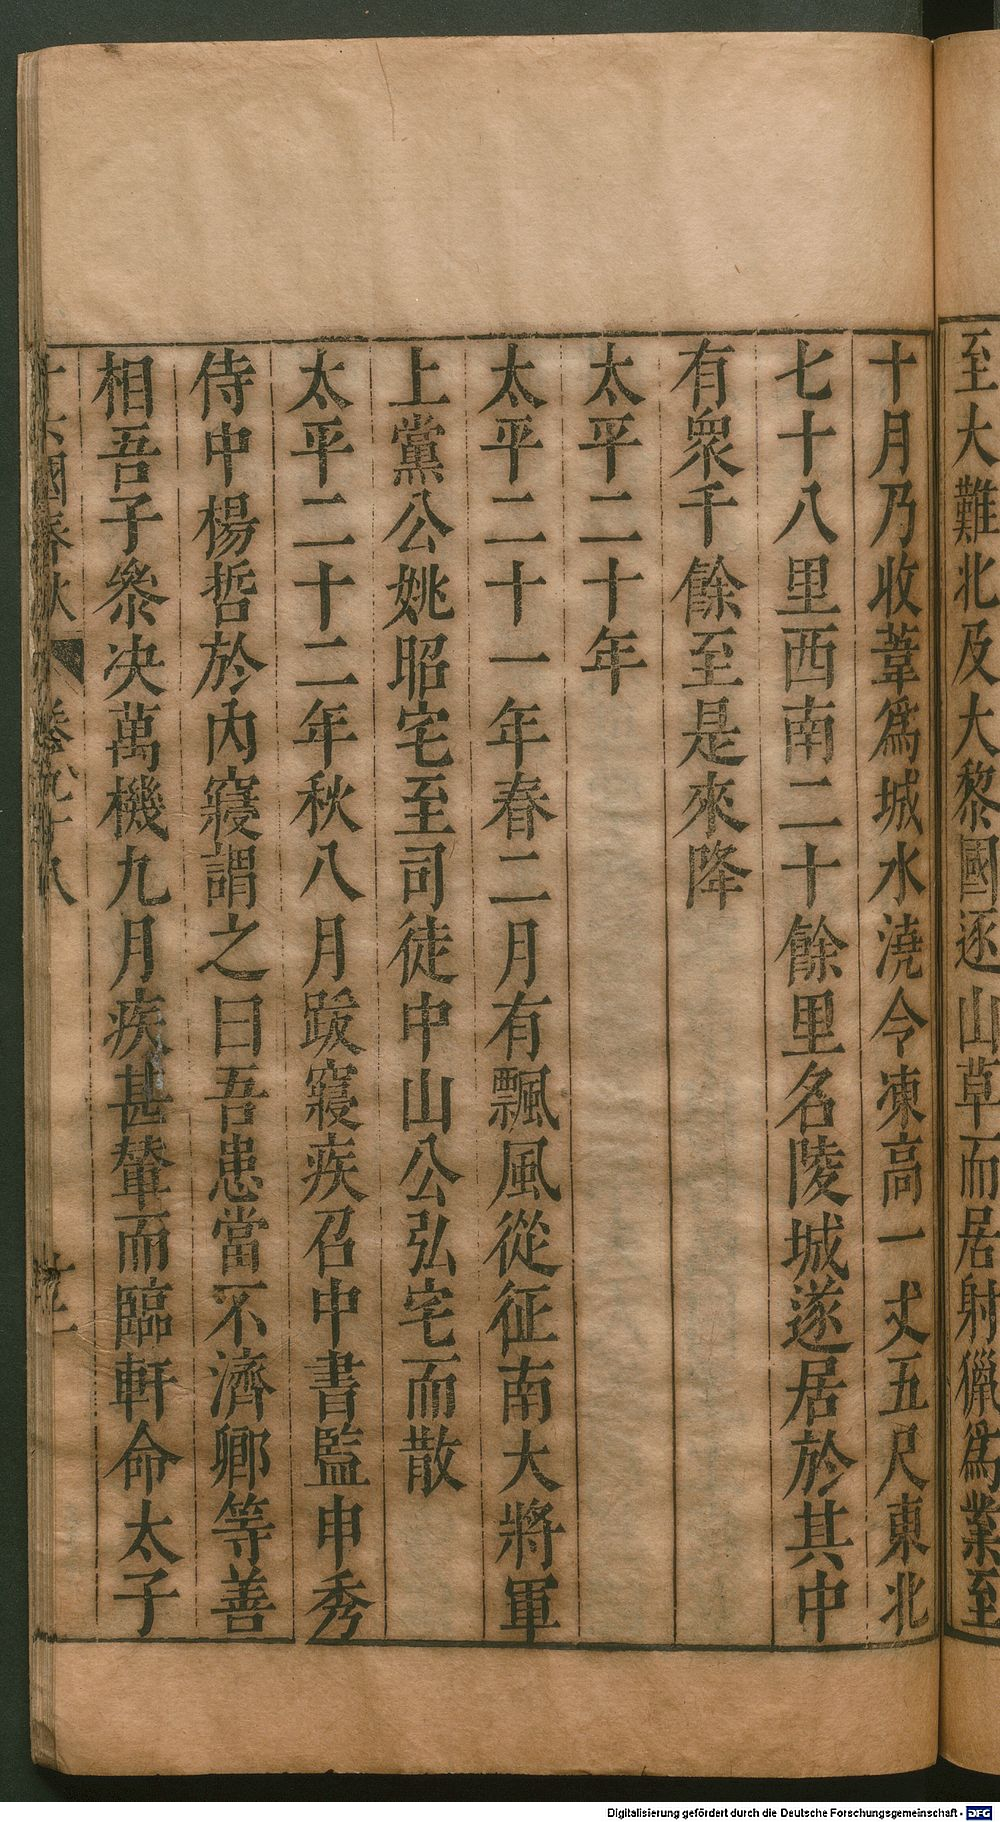 至大難北及大黎國逐山草而居射獵爲業至
十月乃收葦爲城水澆令凍高一丈五尺東北
七十八里西南二十餘里名陵城遂居於其中
有衆千餘至是來降
太平二十年
太平二十一年春二月有飄風從征南大將軍
上黨公姚昭宅至司徒中山公弘宅而散
太平二十二年秋八月跋寢疾召中書監申秀
侍中楊哲於內寢謂之曰吾患當不濟卿等善
相吾子參决萬機九月疾甚輦而臨軒命太子
十六國春秋 卷九十八
Digitalisierung gefördert durch die Deutsche Forschungsgemeinschaft - DFG